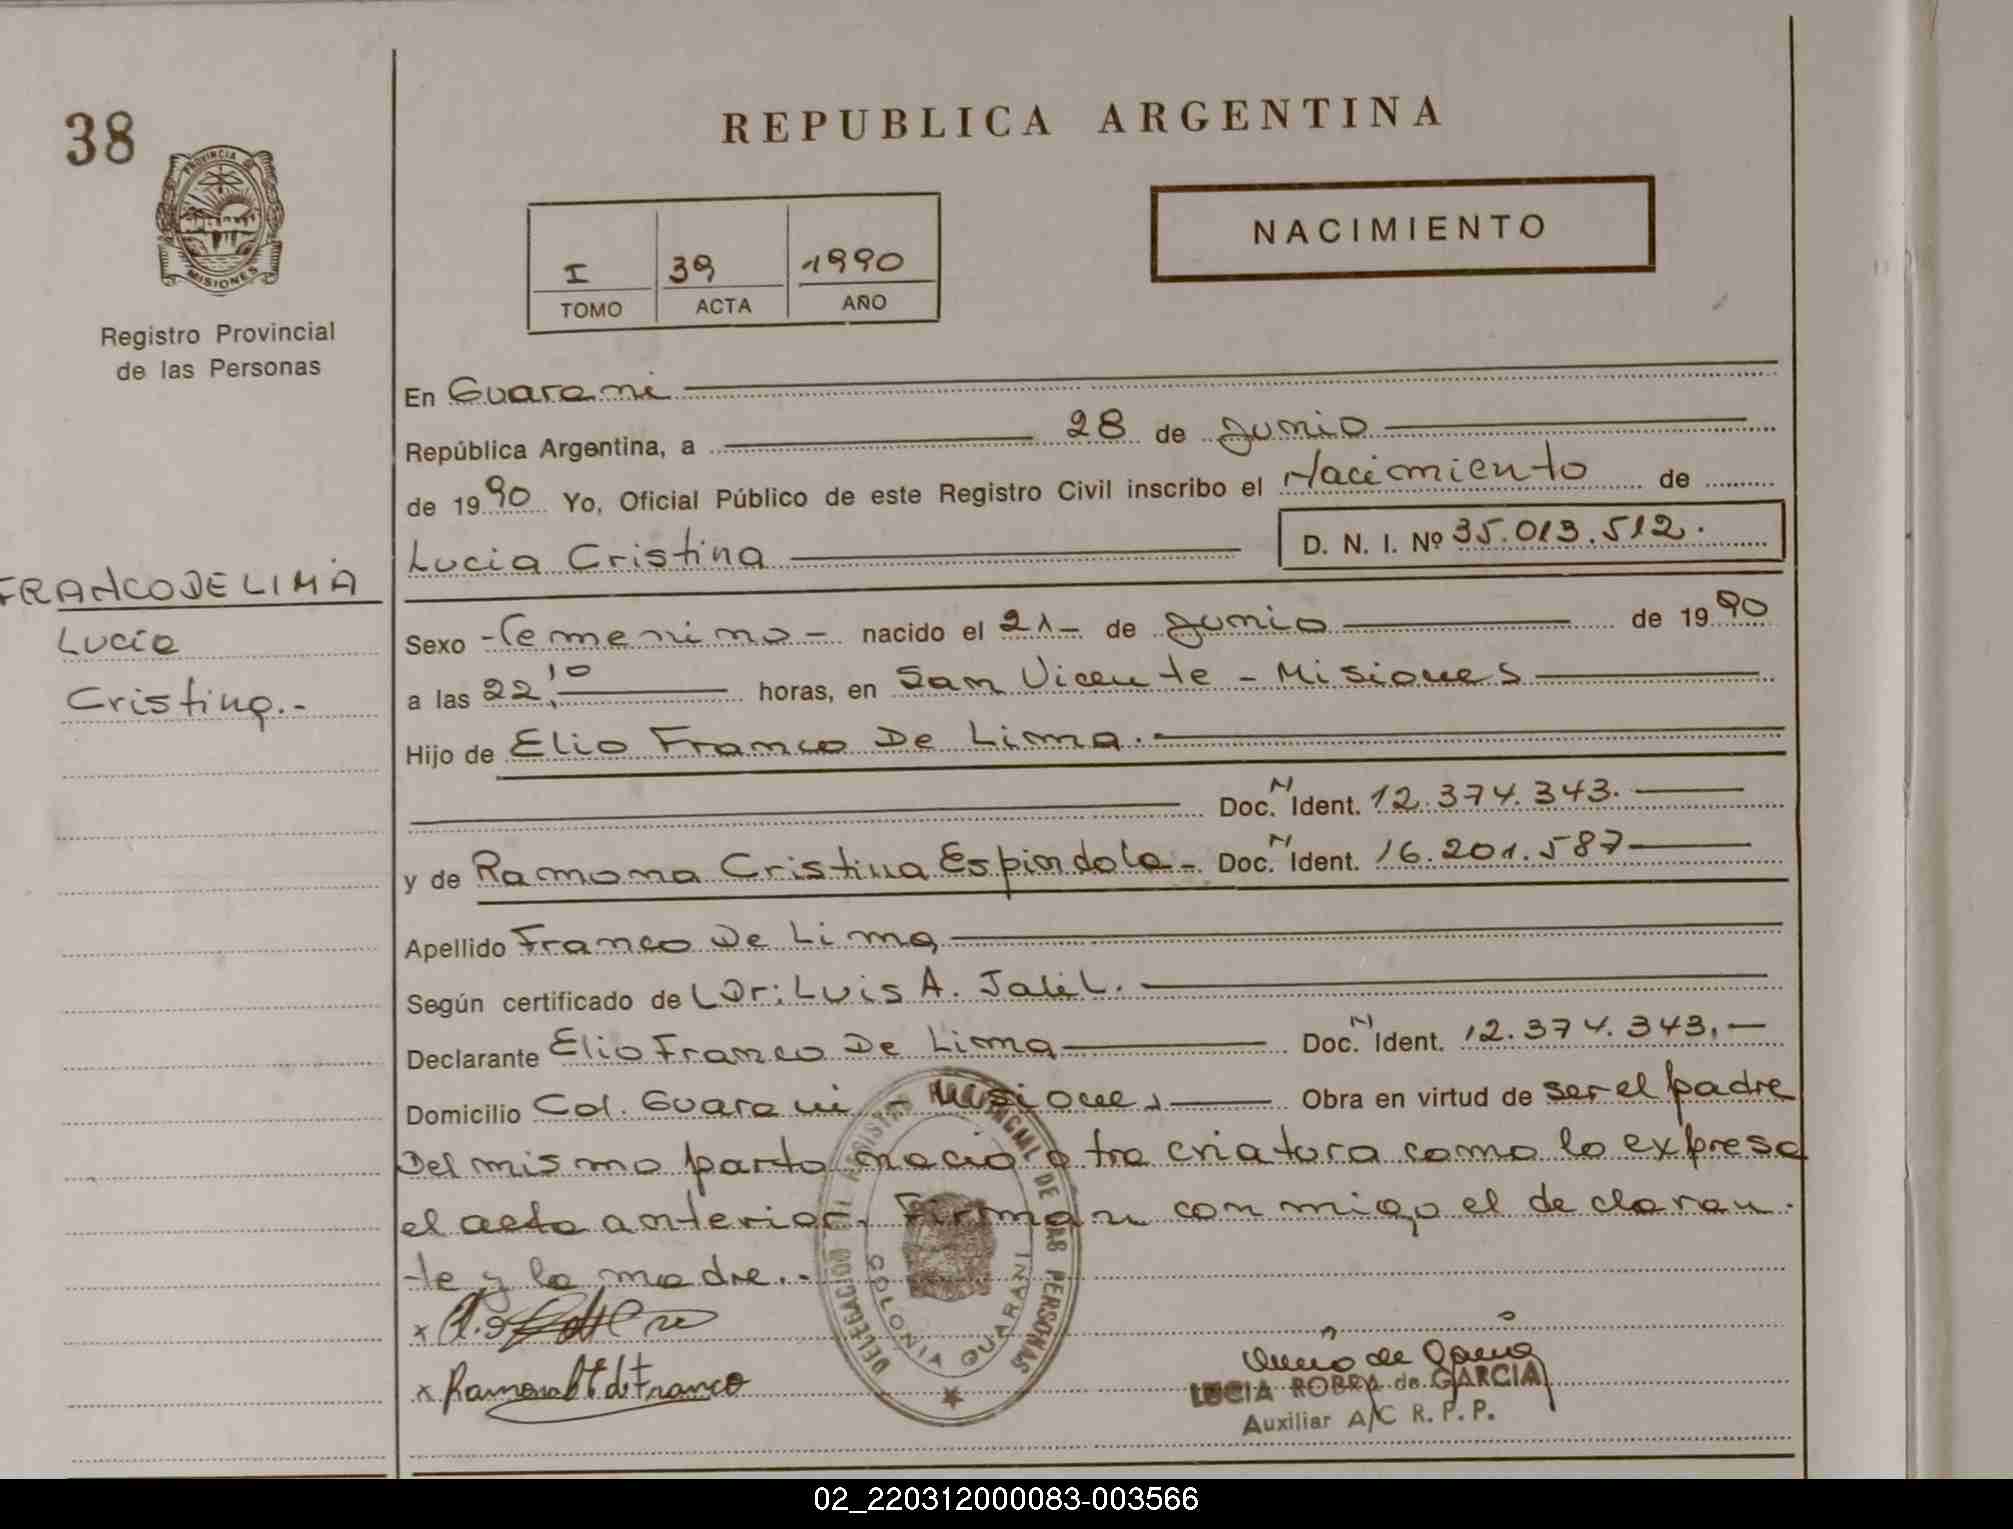 38
REPUBLICA ARGENTINA
PROVINCIA DE
MISIONES
Registro Provincial
de las Personas
I 39 1990
TOMO ACTA AÑO
NACIMIENTO
En Guarani
República Argentina, a 28 de Junio
de 1990 Yo, Oficial Público de este Registro Civil inscribo el Nacimiento de
Lucia Cristina D. N. I. Nº 35.013.512.
FRANCO DE LIMA
Lucia
Cristina.-
Sexo -Femenino- nacido el 21- de Junio de 1990
a las 22,10 horas, en San Vicente - Misiones
Hijo de Elio Franco De Lima.-
Doc. N Ident. 12.374.343.
y de Ramona Cristina Espindola- Doc. N Ident. 16.201.587
Apellido Franco De Lima
Según certificado de L Dr: Luis A. Jalil.
Declarante Elio Franco De Lima Doc. N Ident. 12.374.343.-
Domicilio Col. Guarani - Misiones Obra en virtud de ser el padre
Del mismo parto nacio otra criatura como lo expresa
el acta anterior. Firman conmigo el declaran-
te y la madre.-
DELEGACION DEL REGISTRO PROVINCIAL DE LAS PERSONAS
COLONIA GUARANI
x
x Ramona de Franco
LUCIA ROBRA de GARCIA
Auxiliar A/C R. P. P.
02_220312000083-003566